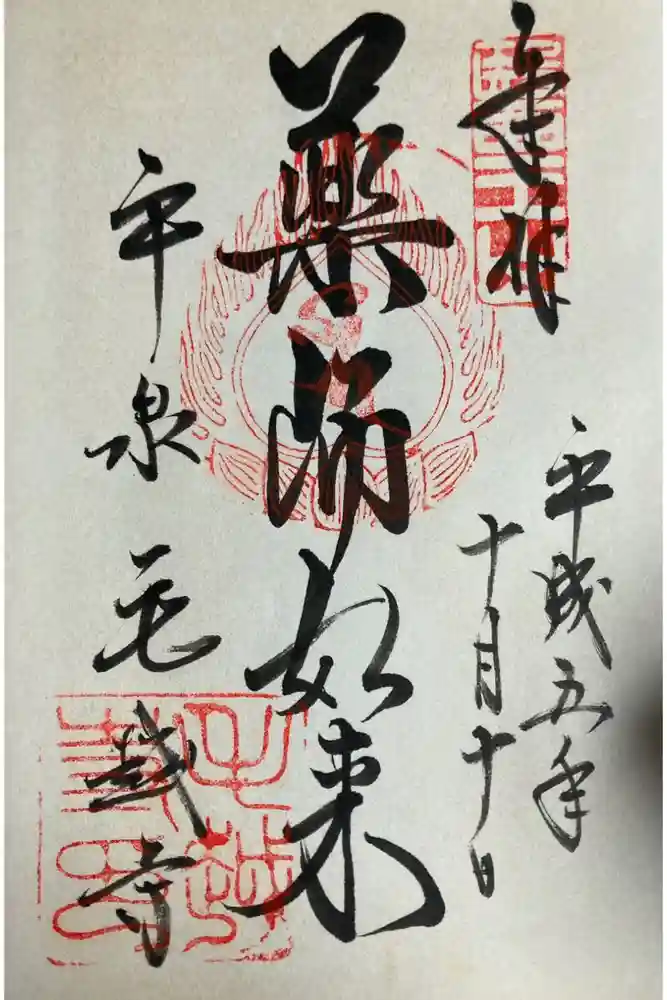 奉拝
平成五年
十月十日
薬師如来
平泉 毛越寺